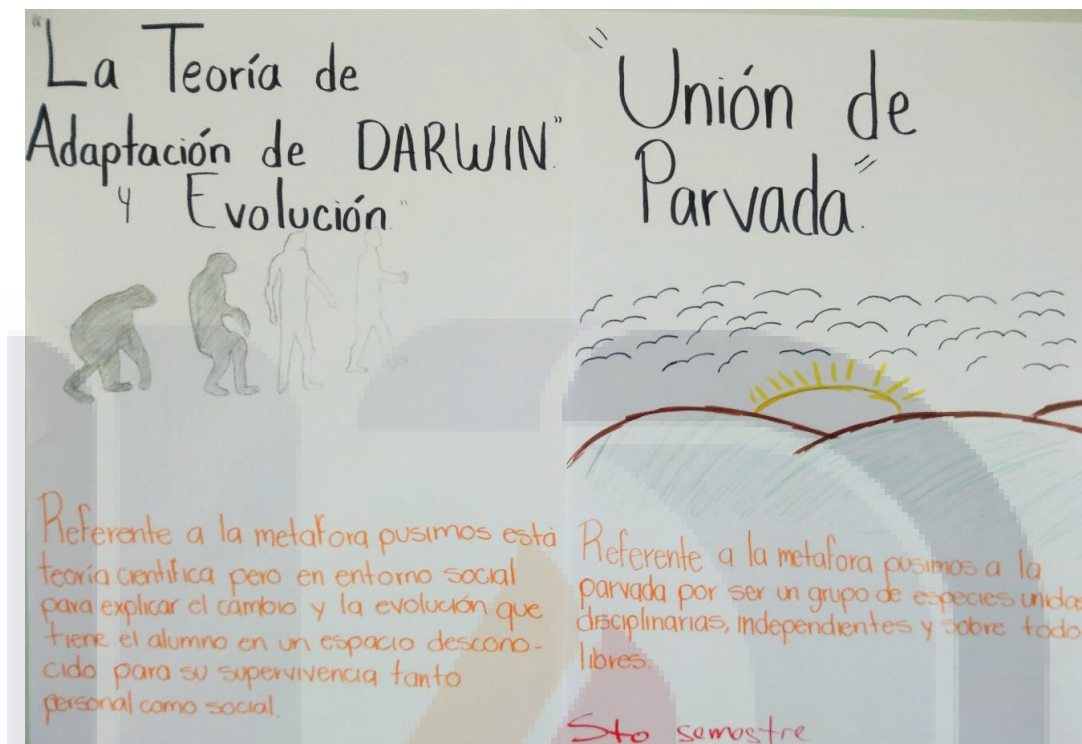 "La Teoría de
Adaptación de DARWIN."
y Evolución."
Referente a la metafora pusimos está
teoría científica pero en entorno social
para explicar el cambio y la evolución que
tiene el alumno en un espacio descono-
cido para su supervivencia tanto
personal como social.
"Unión de
Parvada."
Referente a la metafora pusimos a la
parvada por ser un grupo de especies unidas
disciplinarias, independientes y sobre todo
libres.
5to semestre